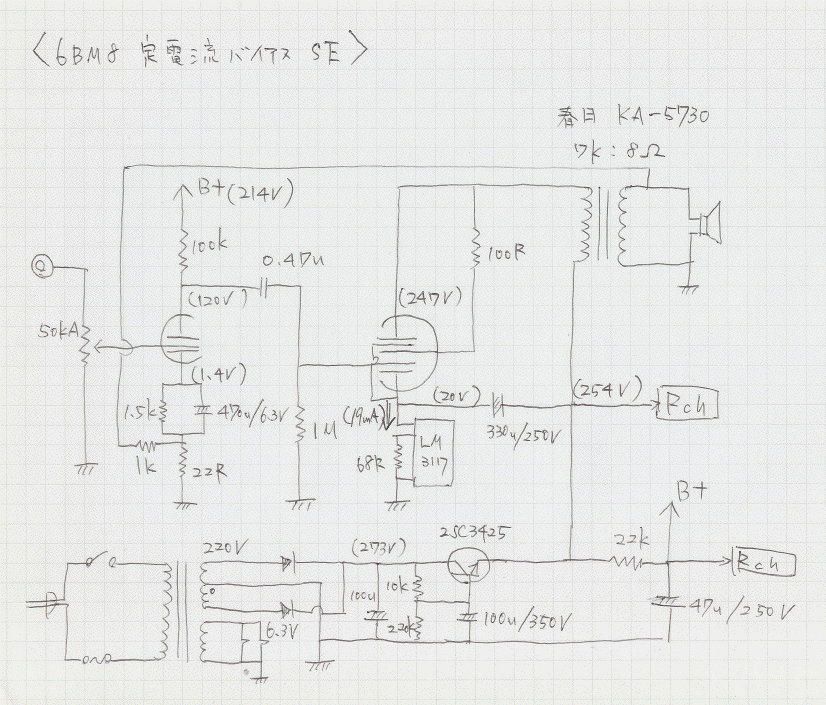 〈6BM8 定電流バイアス SE〉
春日 KA-5730
7k:8Ω
B+(214V)
100k
0.47u
100R
(120V)
(247V)
50kA
(1.4V)
(20V)
(254V)
Rch
1.5k
470u/6.3V
(19mA)
330u/250V
1M
LM
317
68R
1k
22R
B+
2SC3425
220V
(273V)
22k
Rch
100u
10k
100u/350V
47u/250V
220k
6.3V